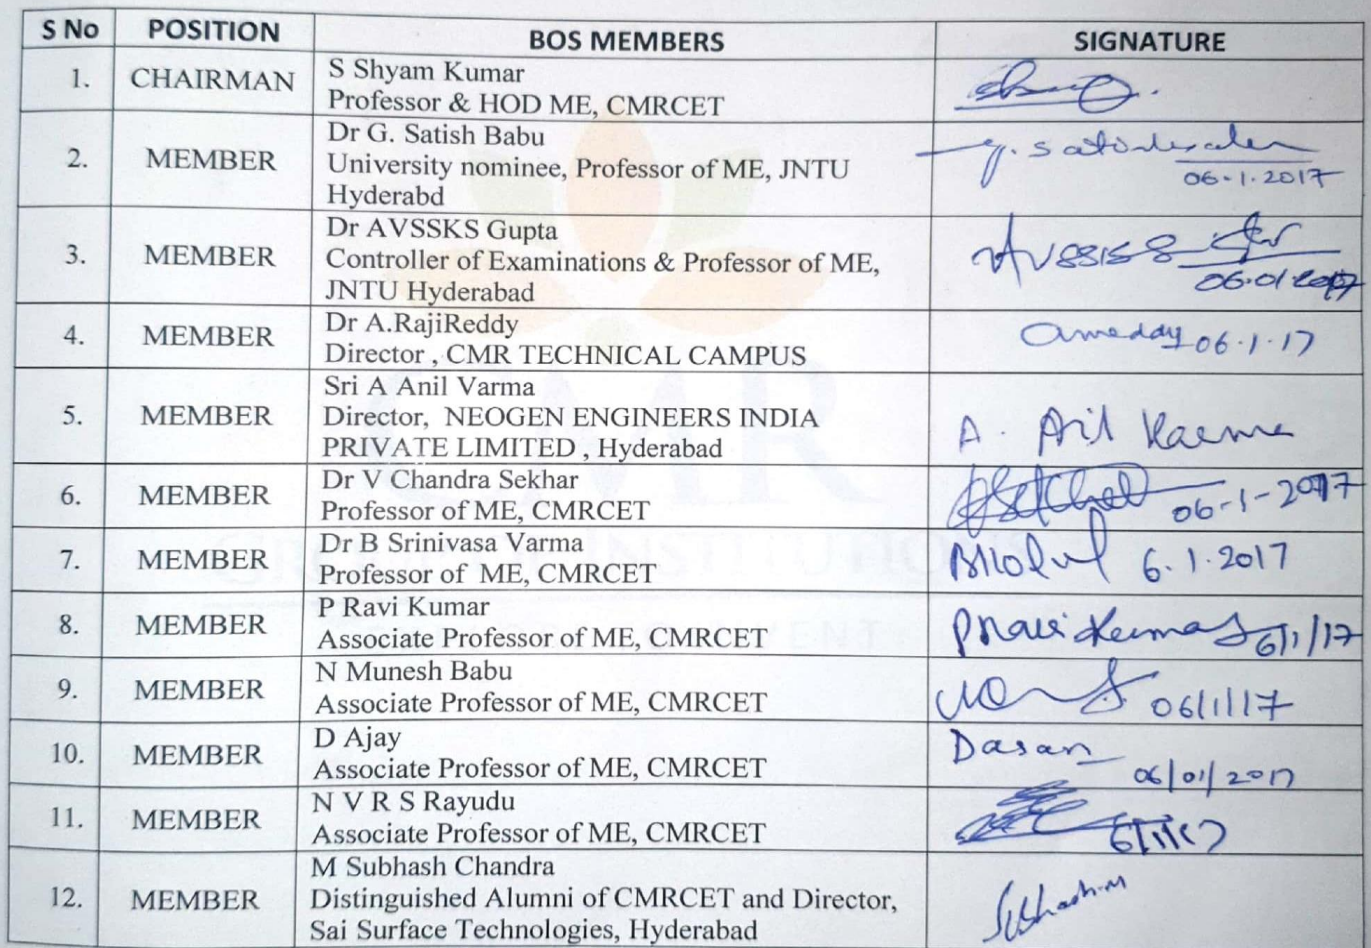 S No POSITION BOS MEMBERS SIGNATURE
1. CHAIRMAN S Shyam Kumar
Professor & HOD ME, CMRCET
2. MEMBER Dr G. Satish Babu
University nominee, Professor of ME, JNTU
Hyderabd
06-1-2017
3. MEMBER Dr AVSSKS Gupta
Controller of Examinations & Professor of ME,
JNTU Hyderabad
06.01.2017
4. MEMBER Dr A.RajiReddy
Director , CMR TECHNICAL CAMPUS
06.1.17
5. MEMBER Sri A Anil Varma
Director, NEOGEN ENGINEERS INDIA
PRIVATE LIMITED , Hyderabad
A.
6. MEMBER Dr V Chandra Sekhar
Professor of ME, CMRCET
06-1-2017
7. MEMBER Dr B Srinivasa Varma
Professor of ME, CMRCET
6.1.2017
8. MEMBER P Ravi Kumar
Associate Professor of ME, CMRCET
6/1/17
9. MEMBER N Munesh Babu
Associate Professor of ME, CMRCET
06/1/17
10. MEMBER D Ajay
Associate Professor of ME, CMRCET
Dasan
06/01/2017
11. MEMBER N V R S Rayudu
Associate Professor of ME, CMRCET
12. MEMBER M Subhash Chandra
Distinguished Alumni of CMRCET and Director,
Sai Surface Technologies, Hyderabad
CMR
GROUP OF INSTITUTIONS